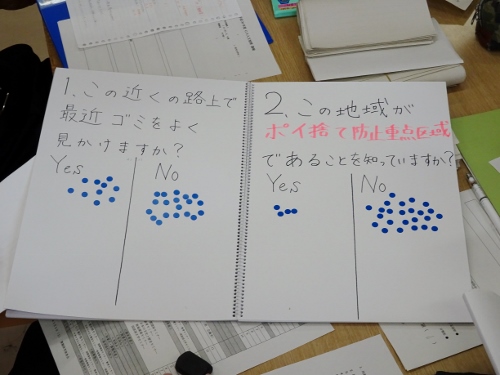 1、この近くの路上で
最近ゴミをよく
見かけますか?
Yes
No
2、この地域が
ポイ捨て防止重点区域
であることを知っていますか?
Yes
No